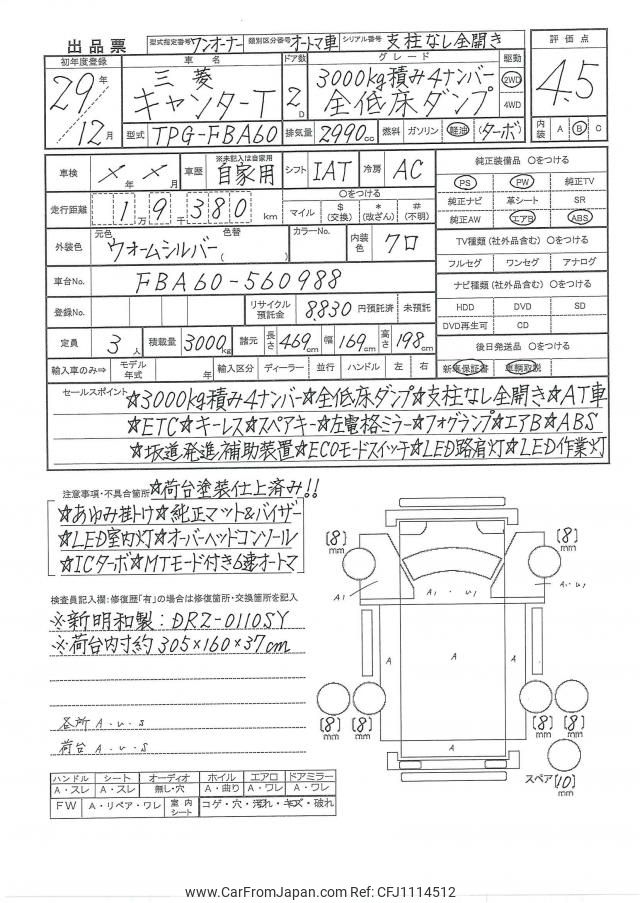 出品票 型式指定番号 ワンオーナー 類別区分番号 オートマ車 シリアル番号 支柱なし全開き
初年度登録 車名 ドア数 グレード 駆動 評価点
29年 三菱 3000kg積み4ナンバー 2WD 4.5
12月 キャンターT 2D 全低床ダンプ 4WD
型式 TPG-FBA60 排気量 2990cc 燃料 ガソリン 軽油 (ターボ) 内装 A B C
車検 ×年 ×月 車歴 ※未記入は自家用 自家用 シフト IAT 冷房 AC 純正装備品 ○をつける
PS PW 純正TV
走行距離 1万9千380km ○をつける マイル $(交換) *(改ざん) #(不明) 純正ナビ 革シート SR
純正AW エアB ABS
外装色 元色 ウォームシルバー 色替 ( ) カラーNo. 内装色 クロ TV種類(社外品含む) ○をつける
フルセグ ワンセグ アナログ
車台No. FBA60-560988 ナビ種類(社外品含む) ○をつける
登録No. リサイクル預託金 8,830 円預託済 未預託 HDD DVD SD
DVD再生可 CD
定員 3人 積載量 3000kg 諸元 長さ 469cm 幅 169cm 高さ 198cm 後日発送品 ○をつける
輸入車のみ⇒ モデル年式 年 輸入区分 ディーラー 並行 ハンドル 左 右 新車保証書 車輌取説
セールスポイント ☆3000kg積み4ナンバー☆全低床ダンプ☆支柱なし全開き☆AT車
☆ETC☆キーレス☆スペアキー☆左電格ミラー☆フォグランプ☆エアB☆ABS
☆坂道発進補助装置☆ECOモードスイッチ☆LED路肩灯☆LED作業灯
注意事項・不具合箇所 ☆荷台塗装仕上済み!!
☆あゆみ掛け☆純正マット&バイザー
☆LED室内灯☆オーバーヘッドコンソール
☆ICターボ☆MTモード付き6速オートマ
検査員記入欄:修復歴「有」の場合は修復箇所・交換箇所を記入
※新明和製:DRZ-0110SY
※荷台内寸約305×160×37cm
各所 A・U・S
荷台 A・U・S
ハンドル シート オーディオ ホイル エアロ ドアミラー
A・スレ A・スレ 無し・穴 A・曲り A・ワレ A・ワレ
FW A・リペア・ワレ 室内シート コゲ・穴・汚れ・キズ・破れ
[8]mm [8]mm
A1 A,・U1 A・U1
A A A
[8]mm [8]mm [8]mm [8]mm
A
スペア [10]mm
www.CarFromJapan.com Ref: CFJ1114512